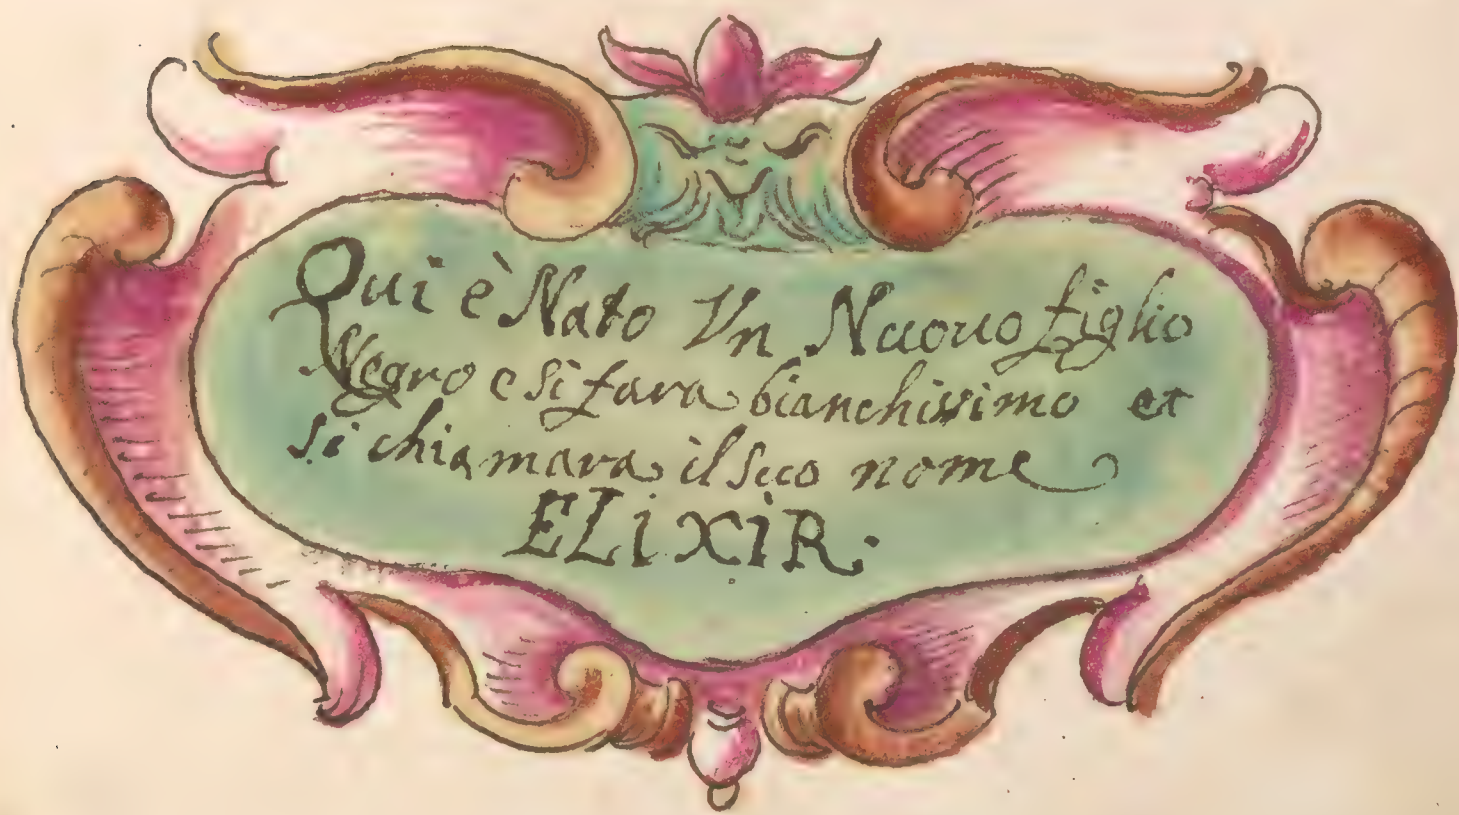 Qui è Nato Vn Nuouo figlio
Negro e si fara bianchissimo et
si chiamara il suo nome
ELiXiR.